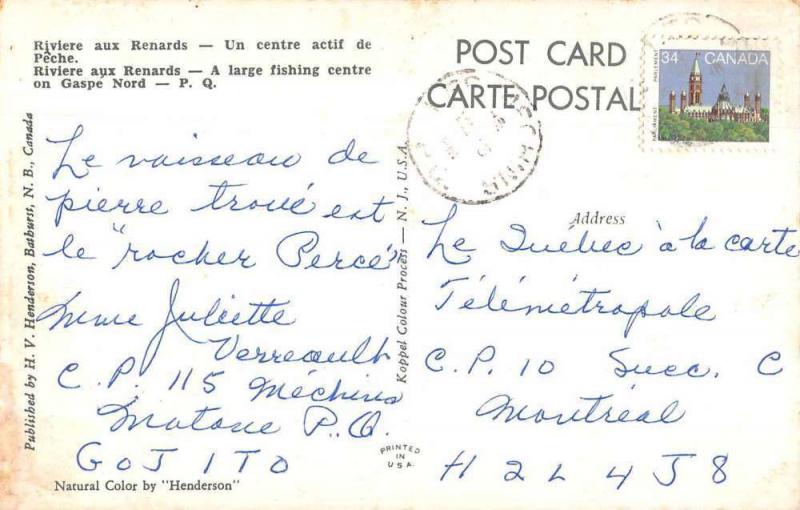 Riviere aux Renards — Un centre actif de
Pêche.
Riviere aux Renards — A large fishing centre
on Gaspé Nord — P. Q.
POST CARD
CARTE POSTALE
34 CANADA
PARLEMENT
PARLIAMENT
Le vaisseau de
pierre troué est
le "rocher Percé"
Mme Juliette
Verreault
C. P. 115 Méchins
Matane P.Q.
G0J 1T0
Address
Le Québec à la carte
Télémétropole
C.P. 10 Succ. C
Montréal
H2L 4J8
Published by H. V. Henderson, Bathurst, N. B., Canada
Koppel Colour Process — N. J., U.S.A.
PRINTED
IN
USA
Natural Color by "Henderson"